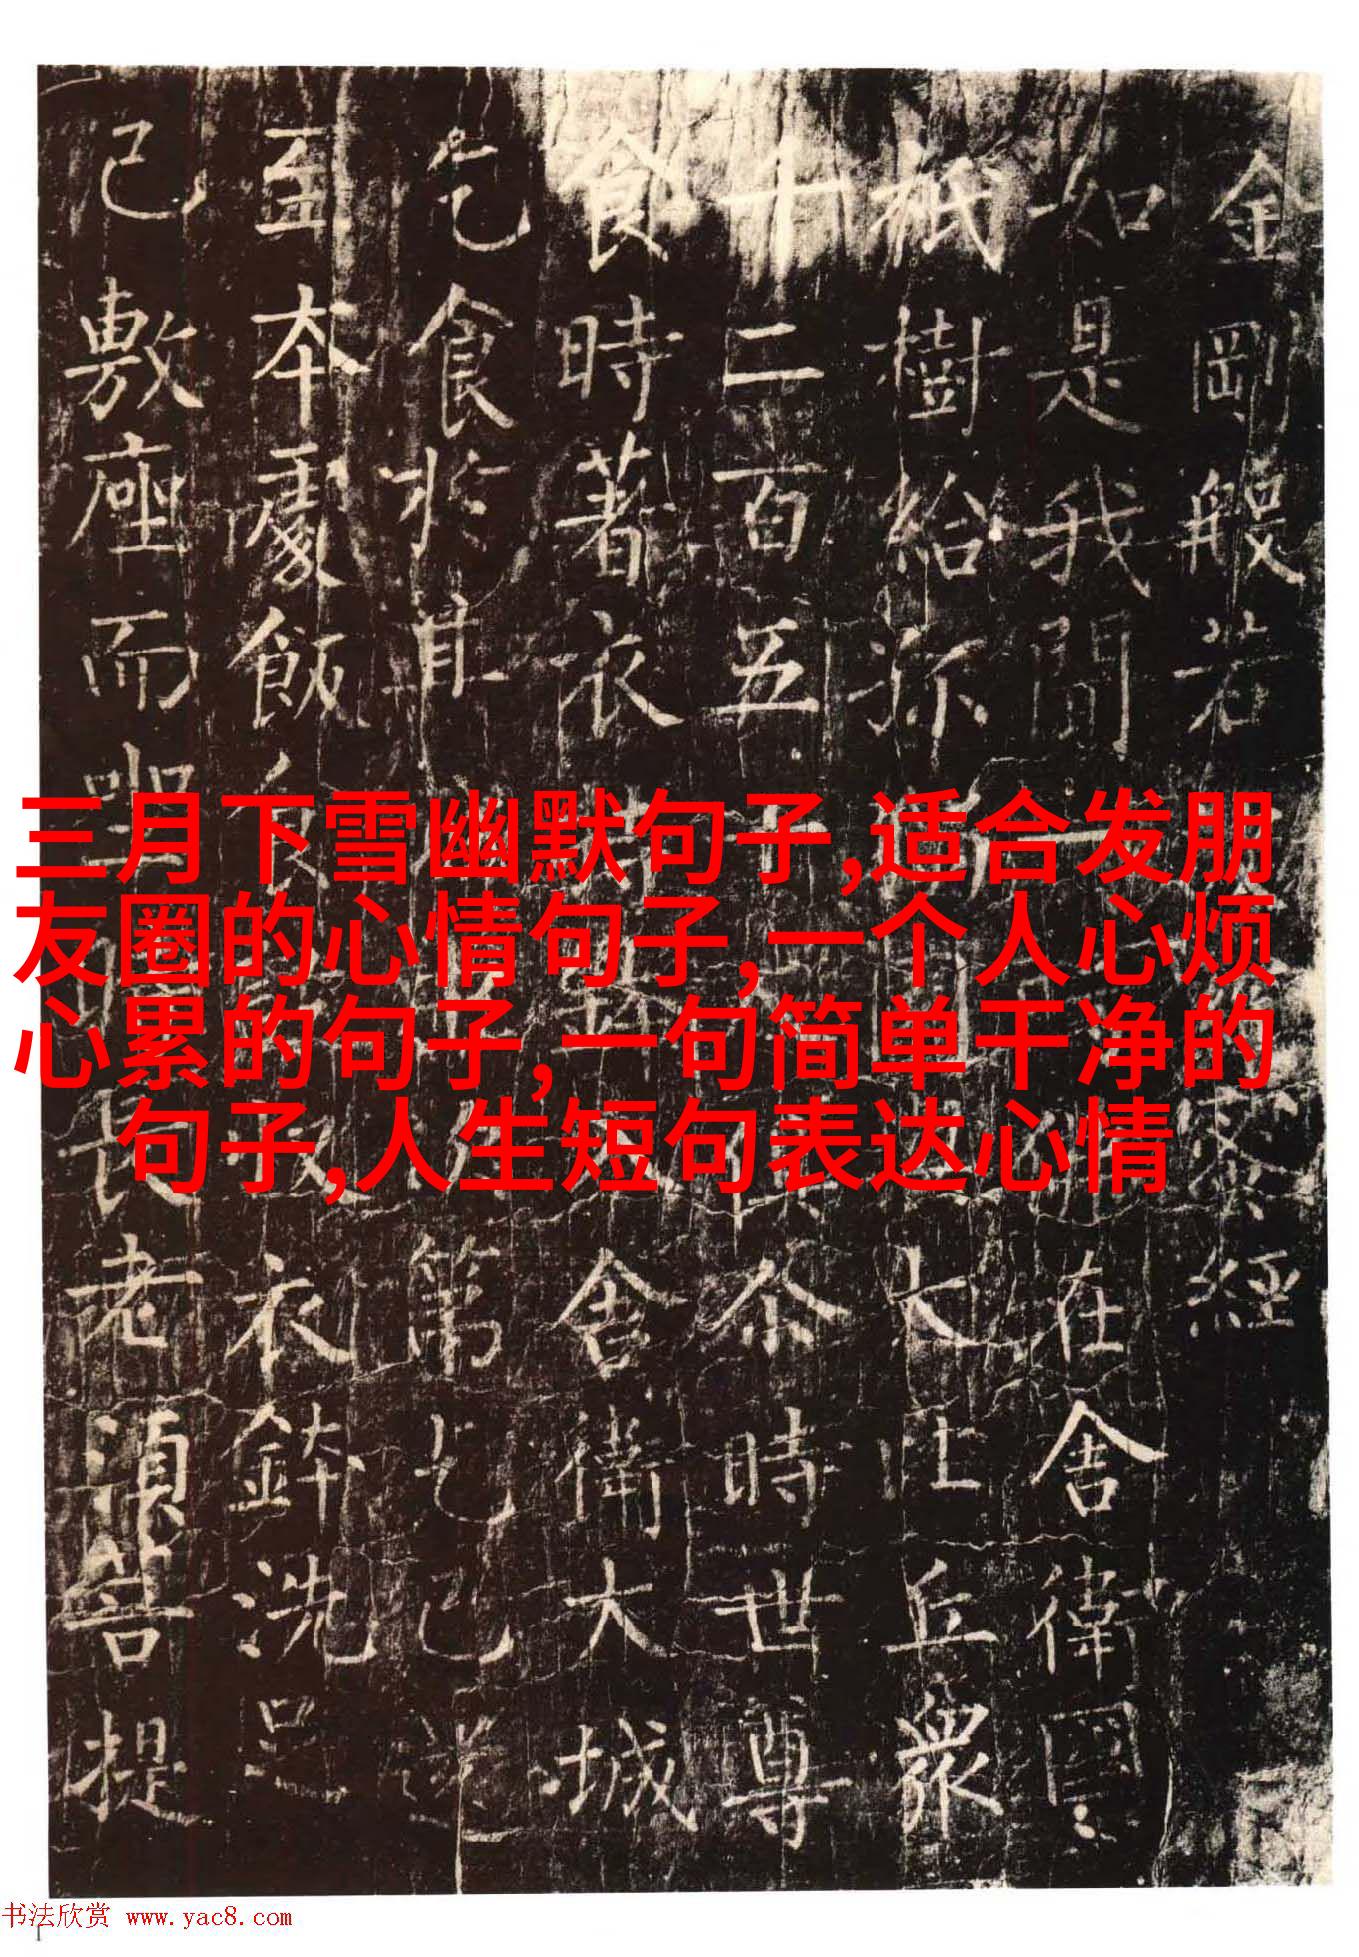 金剛般若經
如是我聞在舍衛國
祇樹給孤大比丘眾
十二百五十尒時世尊
食時著衣舍衛大城
乞食於其第乞已還
至本處飯食衣鉢洗足
已敷座而坐長老須菩提
三月下雪幽默句子,适合发朋
友圈的心情句子,一个人心烦
心累的句子,一句简单干净的
句子,人生短句表达心情
书法欣赏 www.yac8.com